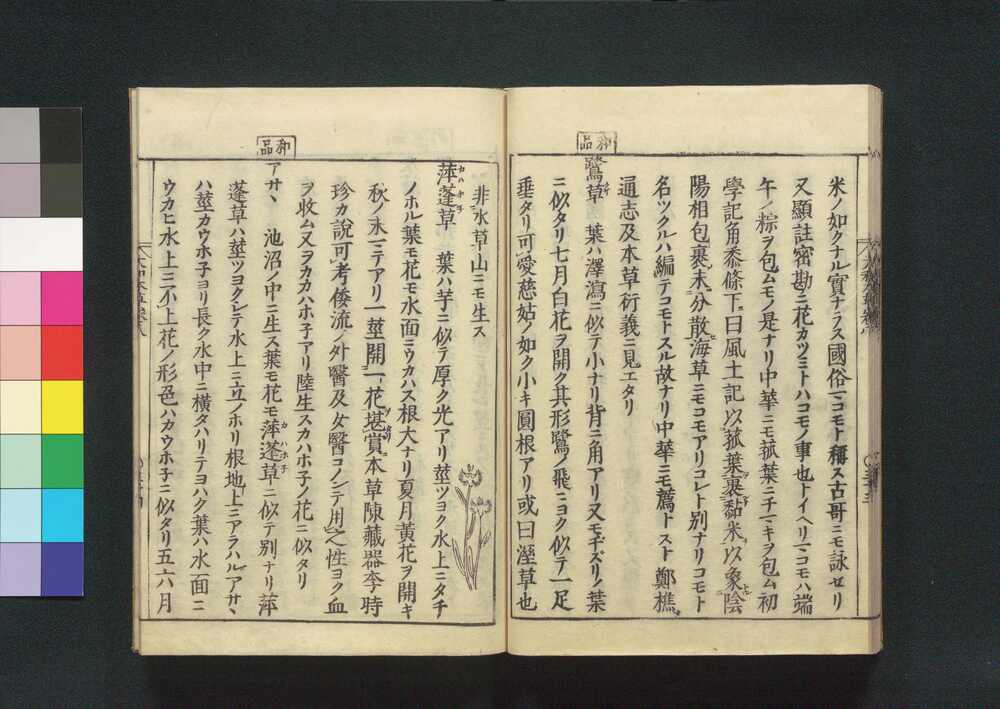 米ノ如クナル實ナラス國俗マコモト稱ス古哥ニモ詠セリ
又顯註密勘ニ花カツミトハコモノ事也トイヘリマコモハ端
午ノ粽ヲ包ムモノ是ナリ中華ニモ菰葉ニチマキヲ包ム初
學記角黍條下曰風土記以菰葉裹黏米以象陰
陽相包裹未分散海草ニモコモアリコレト別ナリコモト
名ツクルハ編テコモトスル故ナリ中華ニモ薦トスト鄭樵
通志及本草衍義ニ見エタリ
和品
鷺草 葉ハ澤瀉ニ似テ小ナリ背ニ角アリ又モヂズリノ葉
ニ似タリ七月白花ヲ開ク其形鷺ノ飛ニヨク似テ一足
垂タリ可愛慈姑ノ如ク小キ圓根アリ或曰溼草也
非水草山ニモ生ス
萍蓬草 葉ハ芋ニ似テ厚ク光アリ莖ツヨク水上ニタチ
ノホル葉モ花モ水面ニウカハス根大ナリ夏月黄花ヲ開キ
秋ノ末ニテアリ一莖開一花堪賞本草陳藏器李時
珍カ說可考倭流ノ外醫及女醫コノンテ用之性ヨク血
ヲ收ム又ヲカカハホ子アリ陸生スカハホ子ノ花ニ似タリ
和品
アサヽ 池沼ノ中ニ生ス葉モ花モ萍蓬草ニ似テ別ナリ萍
蓬草ハ莖ツヨクシテ水上ニ立ノホリ根地上ニアラハルアサヽ
ハ莖カウホ子ヨリ長ク水中ニ横タハリテヨハク葉ハ水面ニ
ウカヒ水上ニ不上花ノ形色ハカウホ子ニ似タリ五六月